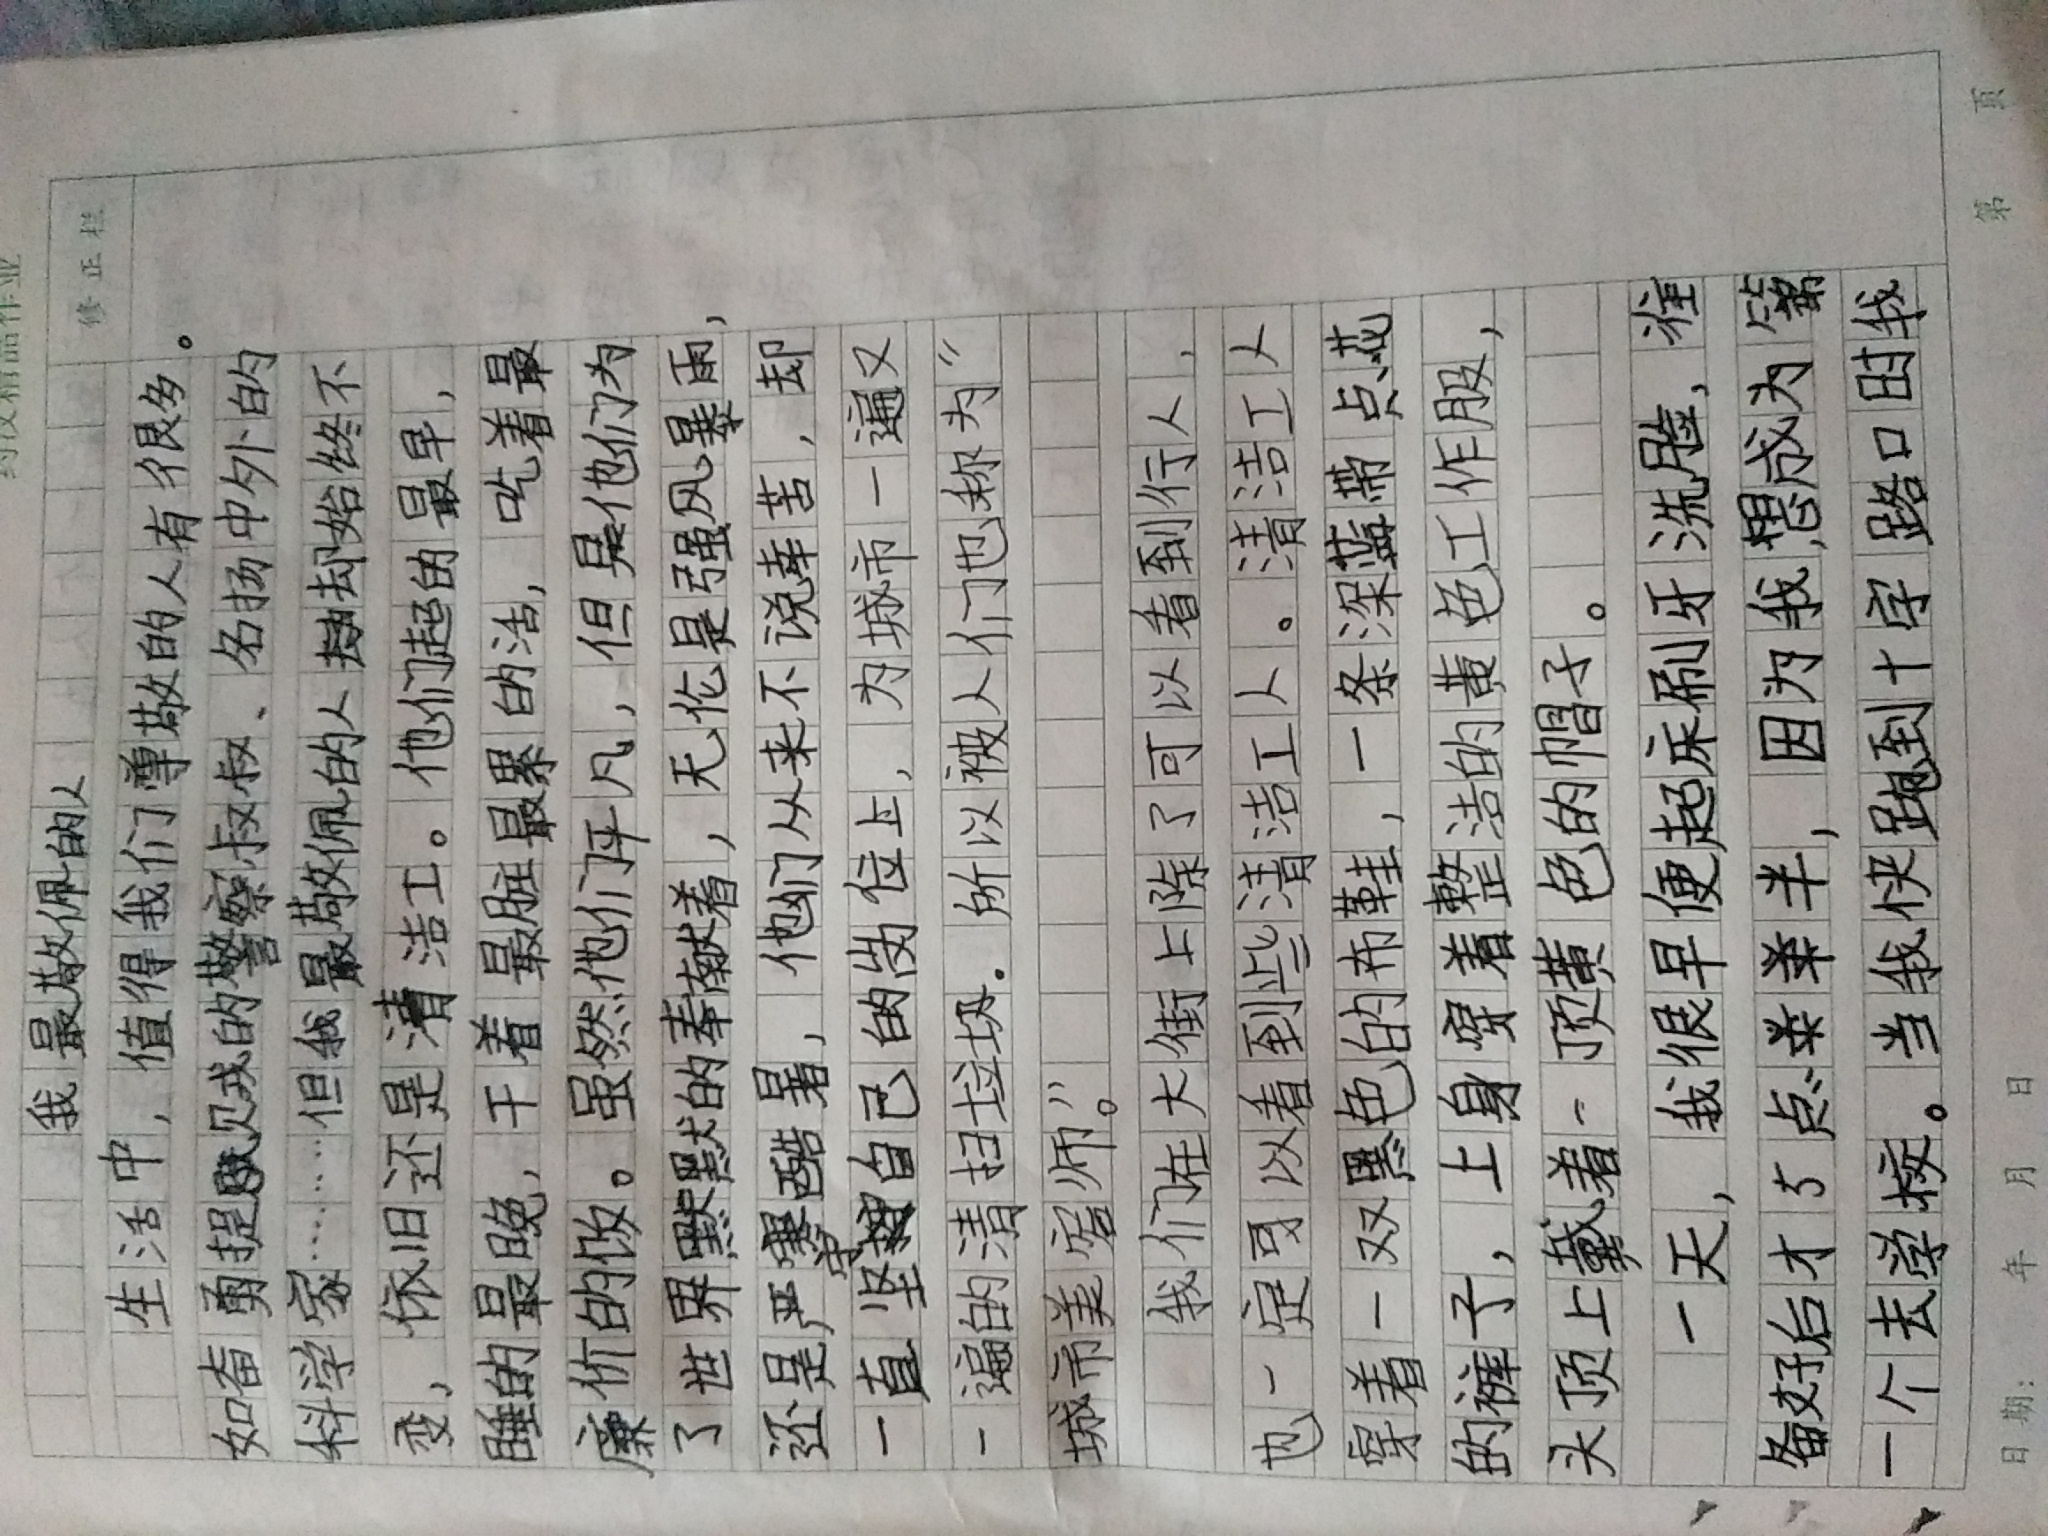 修正栏
我最敬佩的人
生活中，值得我们尊敬的人有很多。
如奋勇提的警察叔叔、名扬中外的
科学家……但我最敬佩的人却始终不
变，依旧还是清洁工。他们起的最早，
睡的最晚，干着最脏最累的活，吃着最
廉价的饭。虽然他们平凡，但是他们为
了世界默默的奉献着，无伦是强风暴雨，
还是严寒酷暑，他们从来不说幸苦，却
一直坚守自己的岗位上，为城市一遍又
一遍的清扫垃圾。所以被人们也称为“
城市美容师”。
我们在大街上除了可以看到行人，
也一定可以看到些清洁工人。清洁工人
穿着一双黑色的布鞋，一条深蓝带点花
的裤子，上身穿着整洁的黄色工作服，
头顶上戴着一顶黄色的帽子。
一天，我很早便起床刷牙洗脸，准
备好后才5点半，因为我想成为第
一个去学校。当我快跑到十字路口时我
日期： 年 月 日 第 页